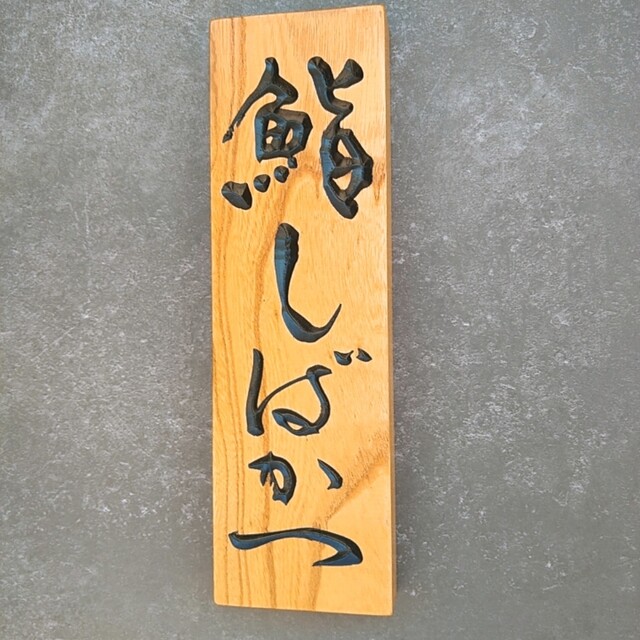 鮨しばかつ